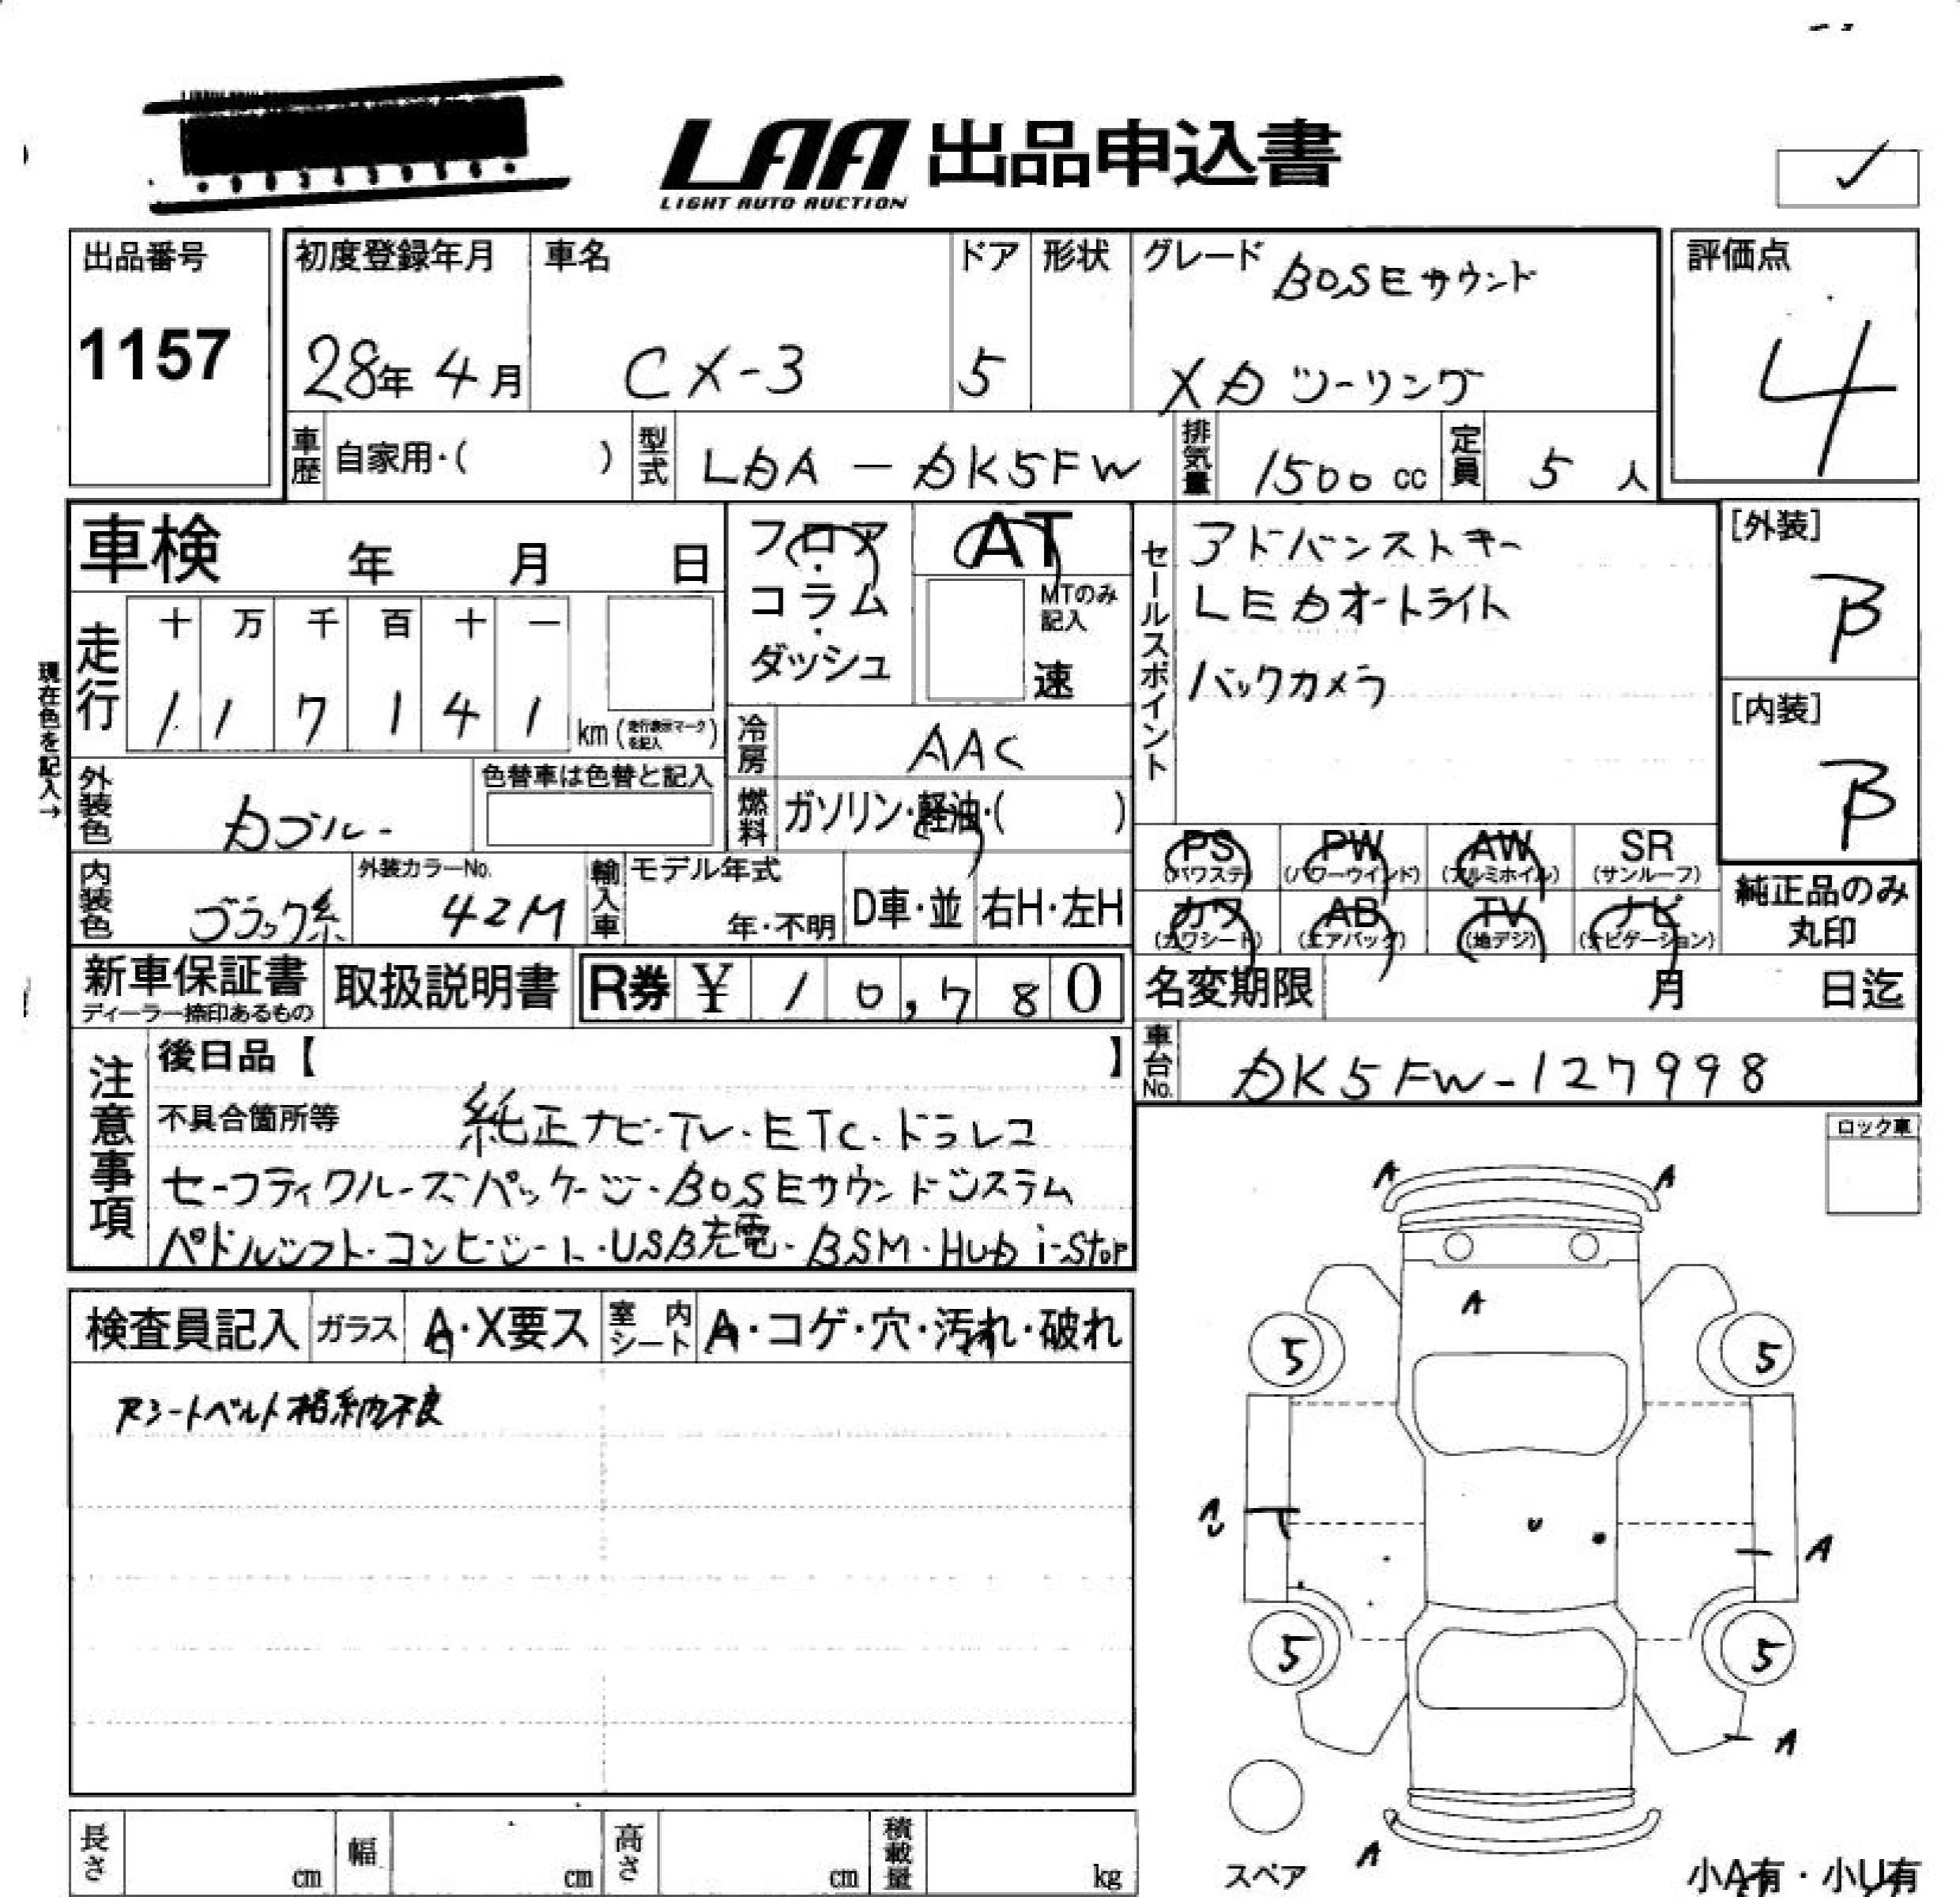 LAA 出品申込書
LIGHT AUTO AUCTION
出品番号
1157
初度登録年月
28年 4月
車名
CX-3
ドア
5
形状
グレード BOSEサウンド
XDツーリング
評価点
4
車歴 自家用・( )
型式 LDA-DK5FW
排気量 1500 cc
定員 5 人
車検 年 月 日
フロア・コラム・ダッシュ
AT
MTのみ記入
速
セールスポイント
アドバンストキー
LEDオートライト
バックカメラ
[外装]
B
[内装]
B
現在色を記入→
走行 十 万 千 百 十 一
1 1 7 1 4 1 km (走行表示マークを記入)
冷房 AAC
外装色 Dブルー
色替車は色替と記入
燃料 ガソリン・軽油・( )
内装色 ブラック系
外装カラーNo. 42M
輸入車 モデル年式
年・不明
D車・並 右H・左H
PS (パワステ) PW (パワーウインド) AW (アルミホイル) SR (サンルーフ)
カワ (カワシート) AB (エアバッグ) TV (地デジ) ナビ (ナビゲーション)
純正品のみ丸印
新車保証書
ディーラー捺印あるもの
取扱説明書
R券 ¥ 10,780
名変期限 月 日迄
車台No. DK5FW-127998
注意事項
後日品【 】
不具合箇所等 純正ナビ・TV・ETC・ドラレコ
セーフティクルーズパッケージ・BOSEサウンドシステム
パドルシフト・コンビシート・USB充電・BSM・HUD i-Stop
ロック車
検査員記入 ガラス A・X要ス 室内シート A・コゲ・穴・汚れ・破れ
Rシートベルト格納不良
A A
A
5 5
A U
U
A
5 5
A
A
スペア
小A有・小U有
長さ cm 幅 cm 高さ cm 積載量 kg